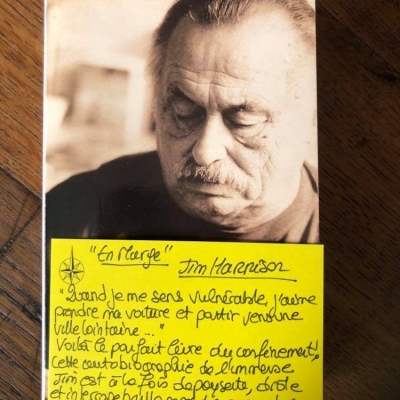 "En Marge"
Jim HARRISON
"Quand je me sens vulnérable, j'aime
prendre ma voiture et partir vers une
ville lointaine..."
Voilà le parfait livre du confinement!
cette autobiographie de l'immense
Jim est à la fois dépaysante, drôle
et